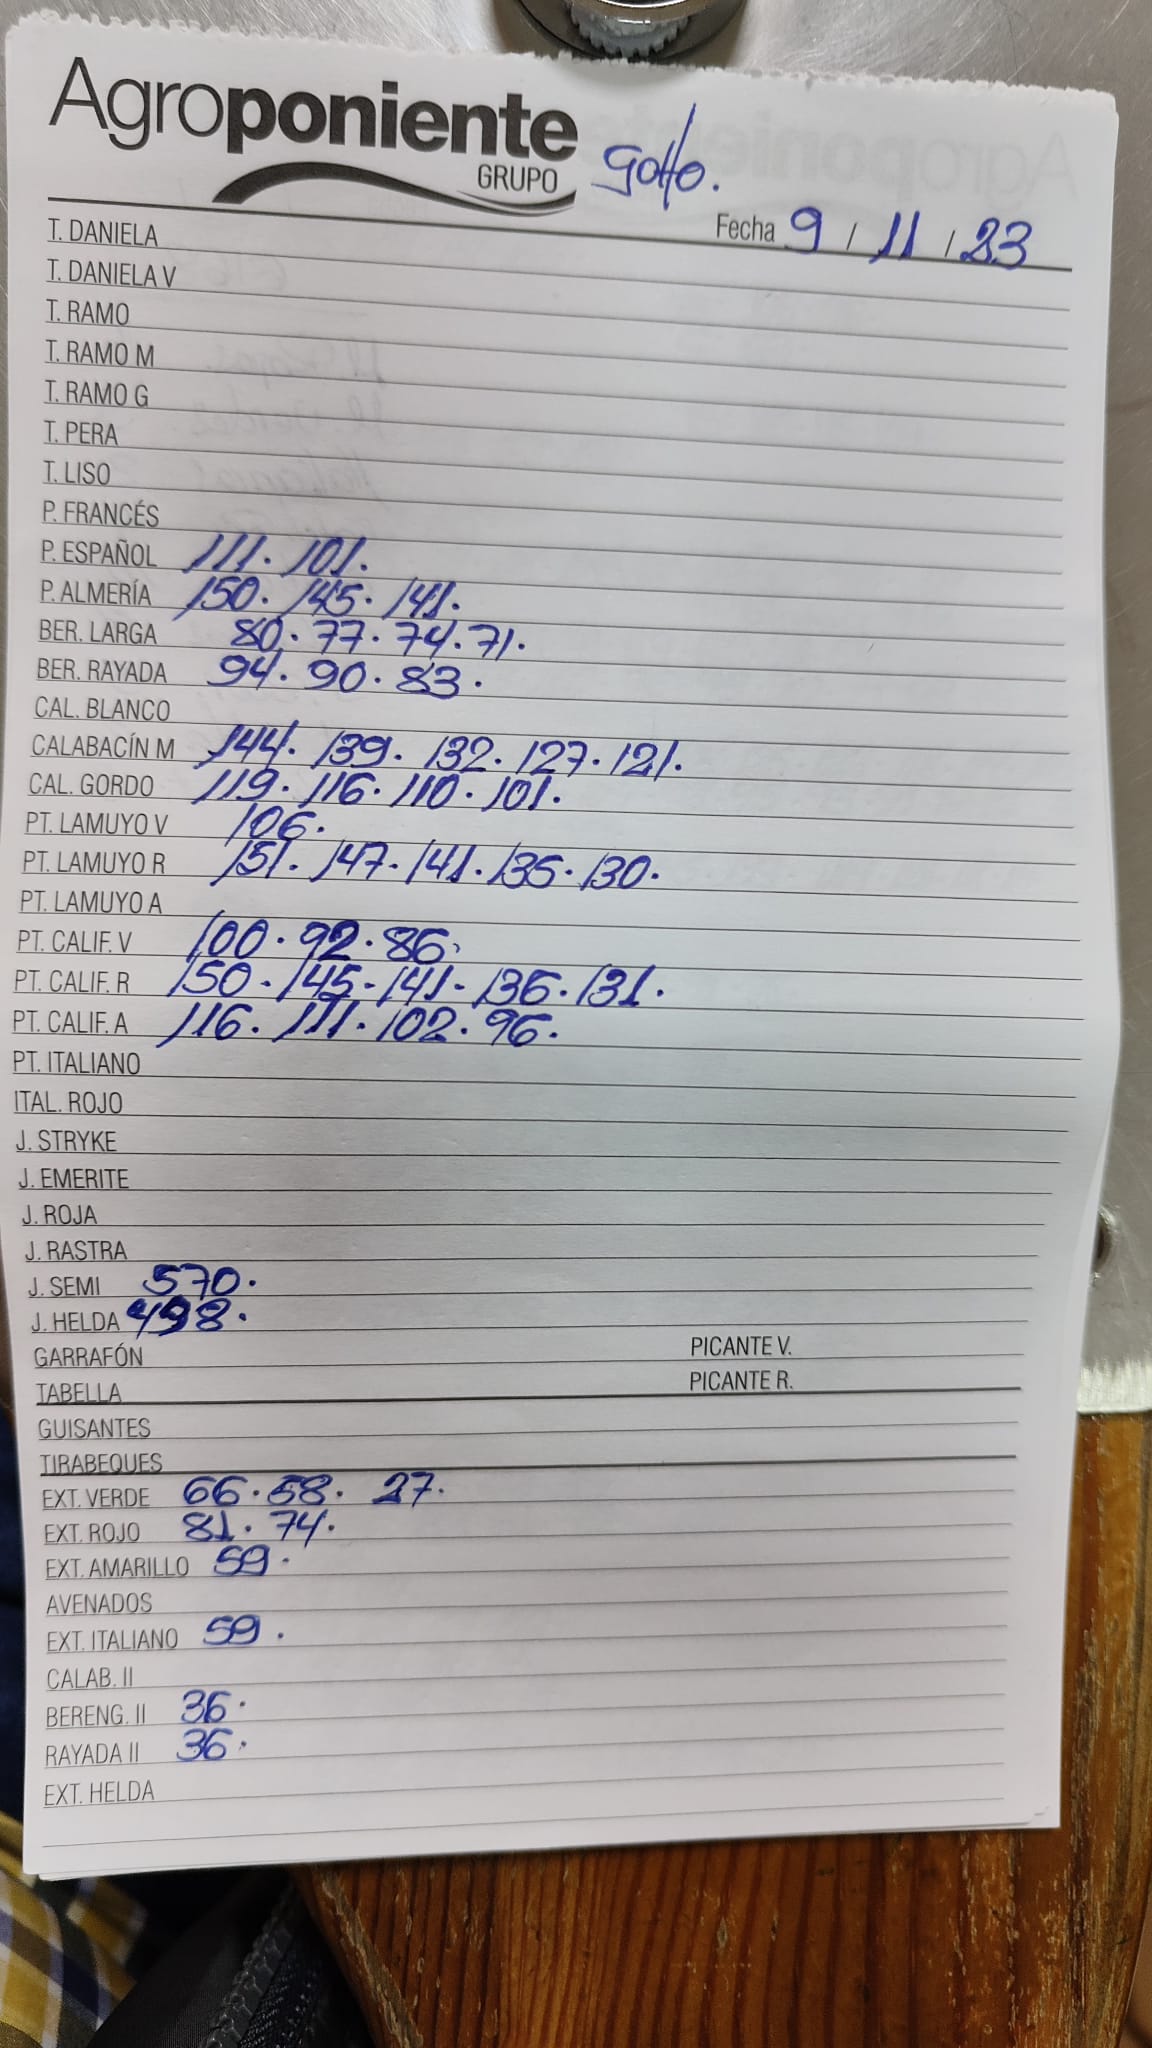 Agroponiente
GRUPO
Golfo.
Fecha 9 / 11 / 23
T. DANIELA
T. DANIELA V
T. RAMO
T. RAMO M
T. RAMO G
T. PERA
T. LISO
P. FRANCÉS
P. ESPAÑOL 111. 101.
P. ALMERÍA 150. 145. 141.
BER. LARGA 80. 77. 74. 71.
BER. RAYADA 94. 90. 83.
CAL. BLANCO
CALABACÍN M 144. 139. 132. 127. 121.
CAL. GORDO 119. 116. 110. 101.
PT. LAMUYO V 106.
PT. LAMUYO R 151. 147. 141. 135. 130.
PT. LAMUYO A
PT. CALIF. V 100. 92. 86.
PT. CALIF. R 150. 145. 141. 136. 131.
PT. CALIF. A 116. 111. 102. 96.
PT. ITALIANO
ITAL. ROJO
J. STRYKE
J. EMERITE
J. ROJA
J. RASTRA
J. SEMI 570.
J. HELDA 498.
GARRAFÓN PICANTE V.
TABELLA PICANTE R.
GUISANTES
TIRABEQUES
EXT. VERDE 66. 58. 27.
EXT. ROJO 81. 74.
EXT. AMARILLO 59.
AVENADOS
EXT. ITALIANO 59.
CALAB. II
BERENG. II 36.
RAYADA II 36.
EXT. HELDA